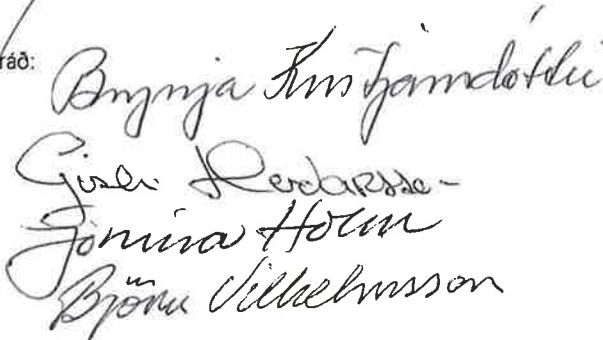 ráð:
Brynja Kristjánsdóttir
Gísli
Jónína Holm
Björn Vilhelmsson